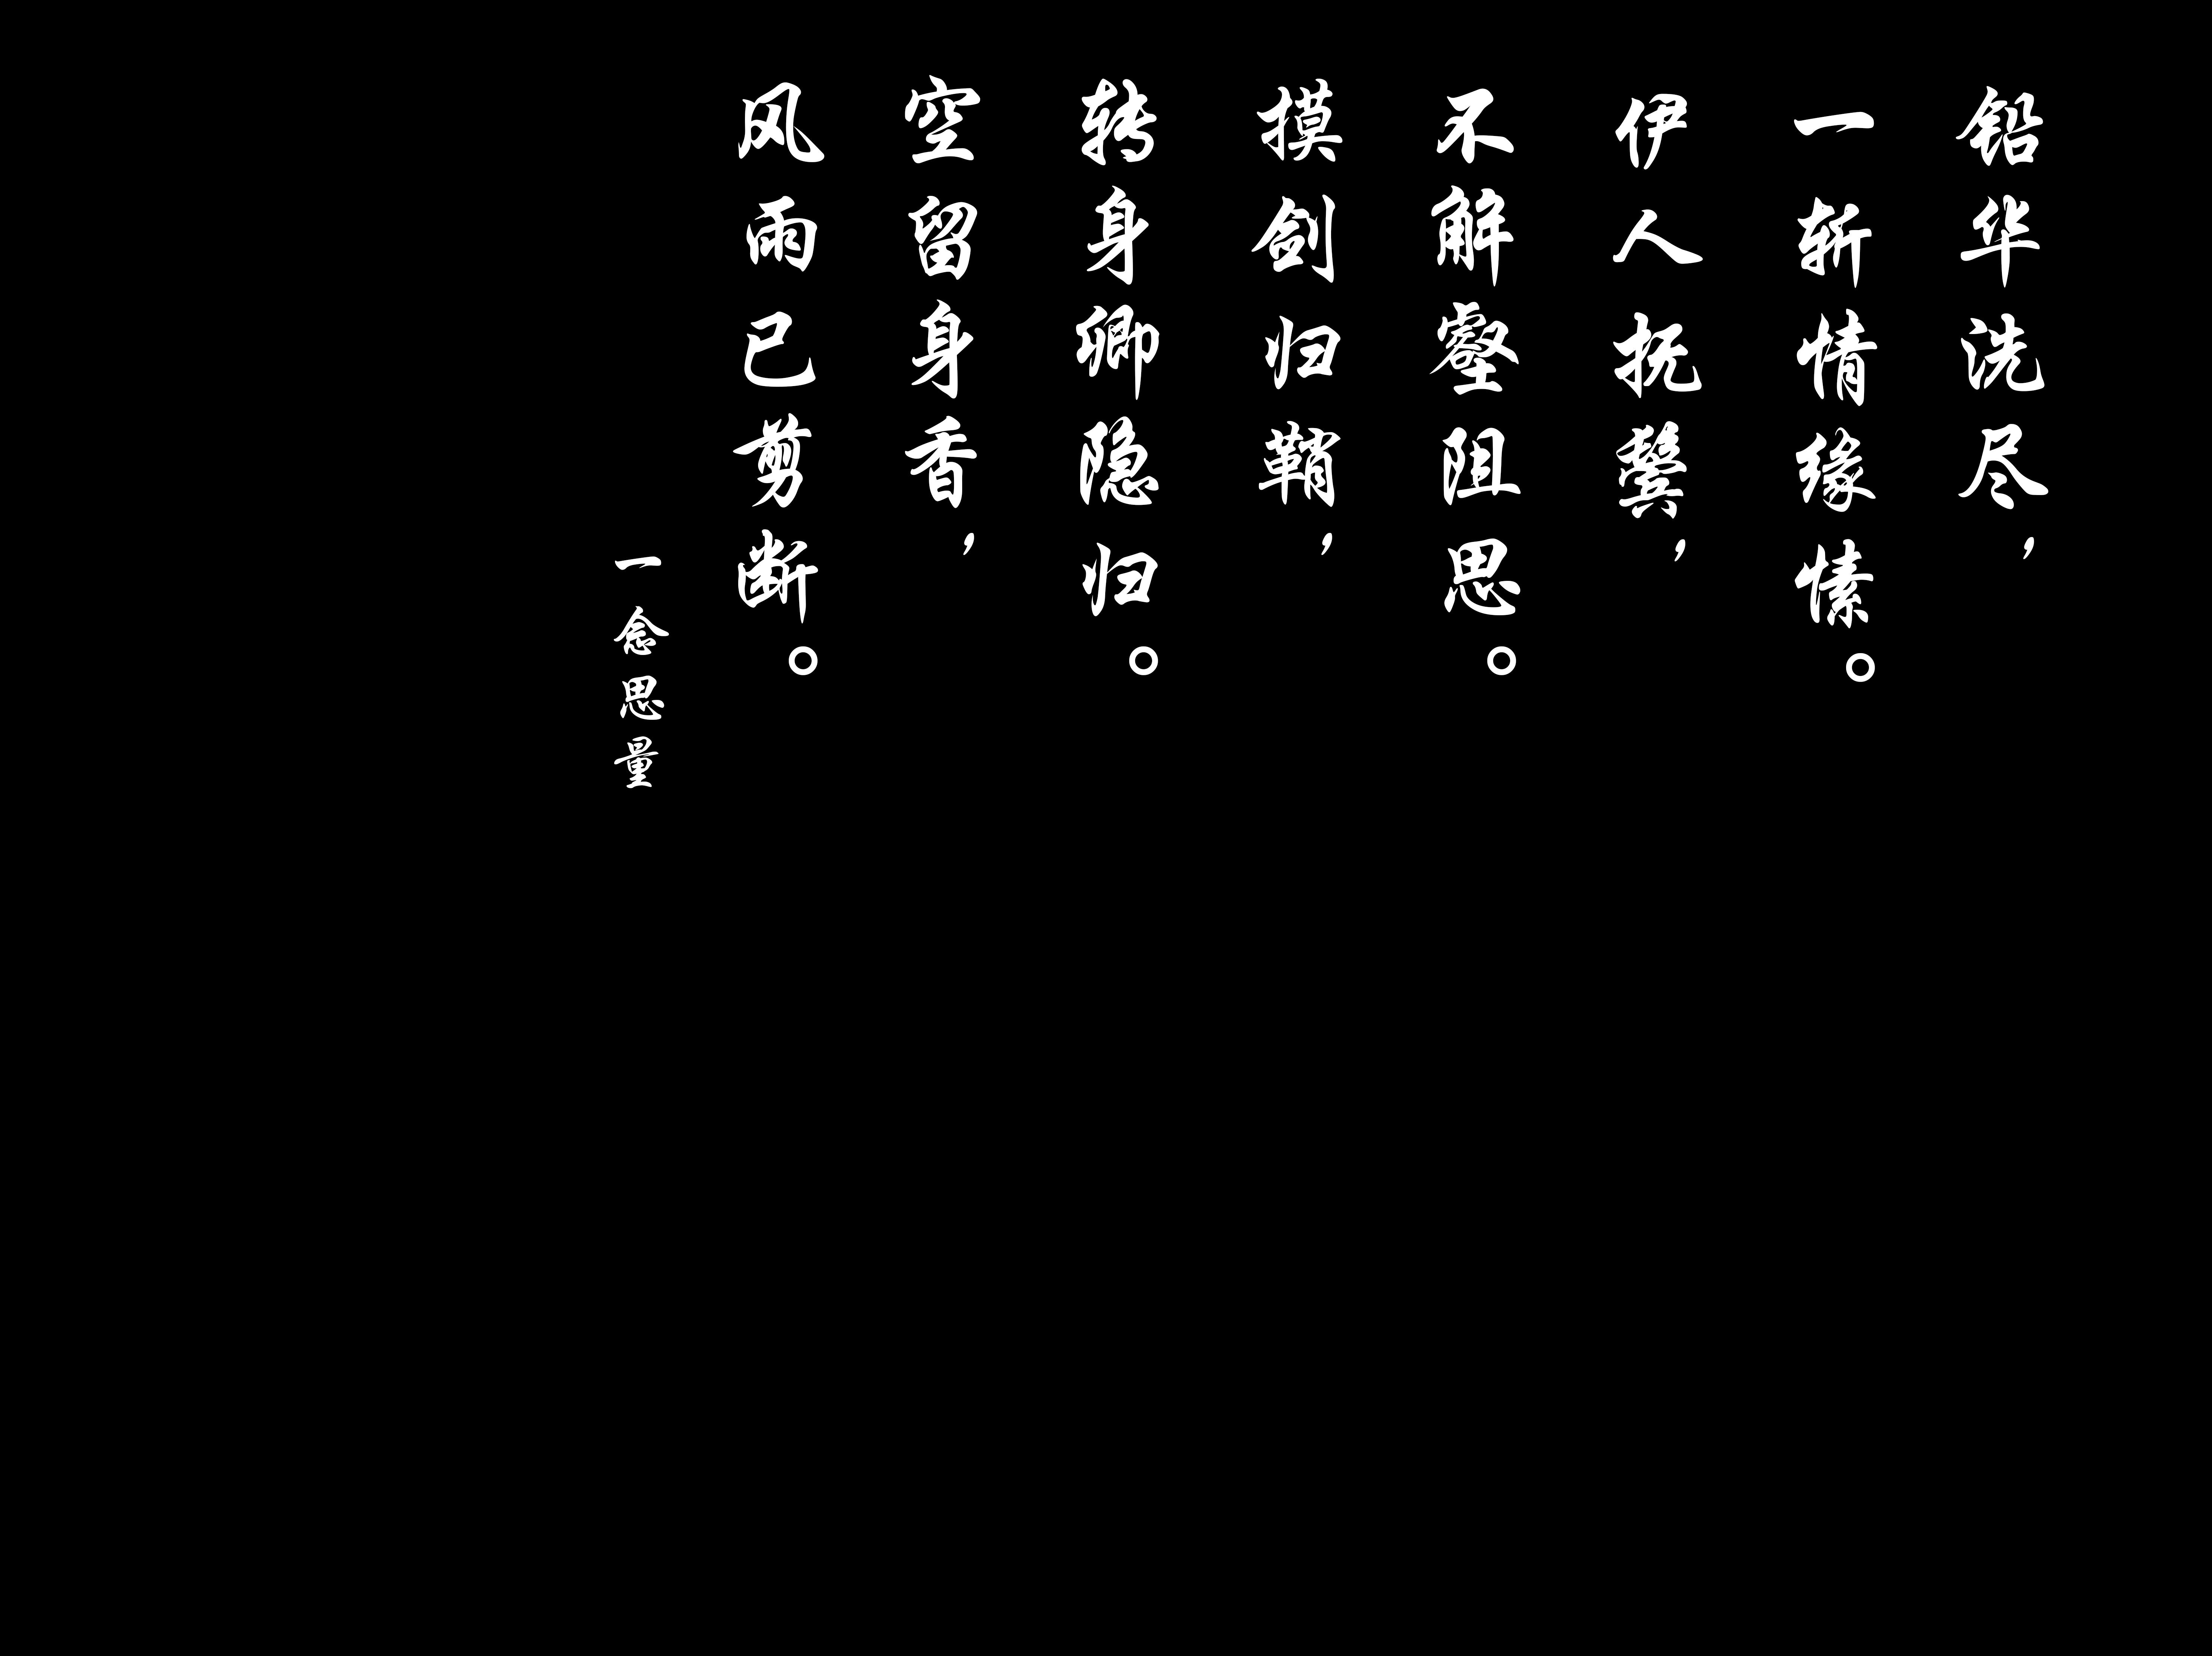 铅华洗尽，
一斩情缘愫。
伊人执，
不解思。
横剑归鞘，
身卿隐归。
空留身香，
风雨已剪断。
一念思量